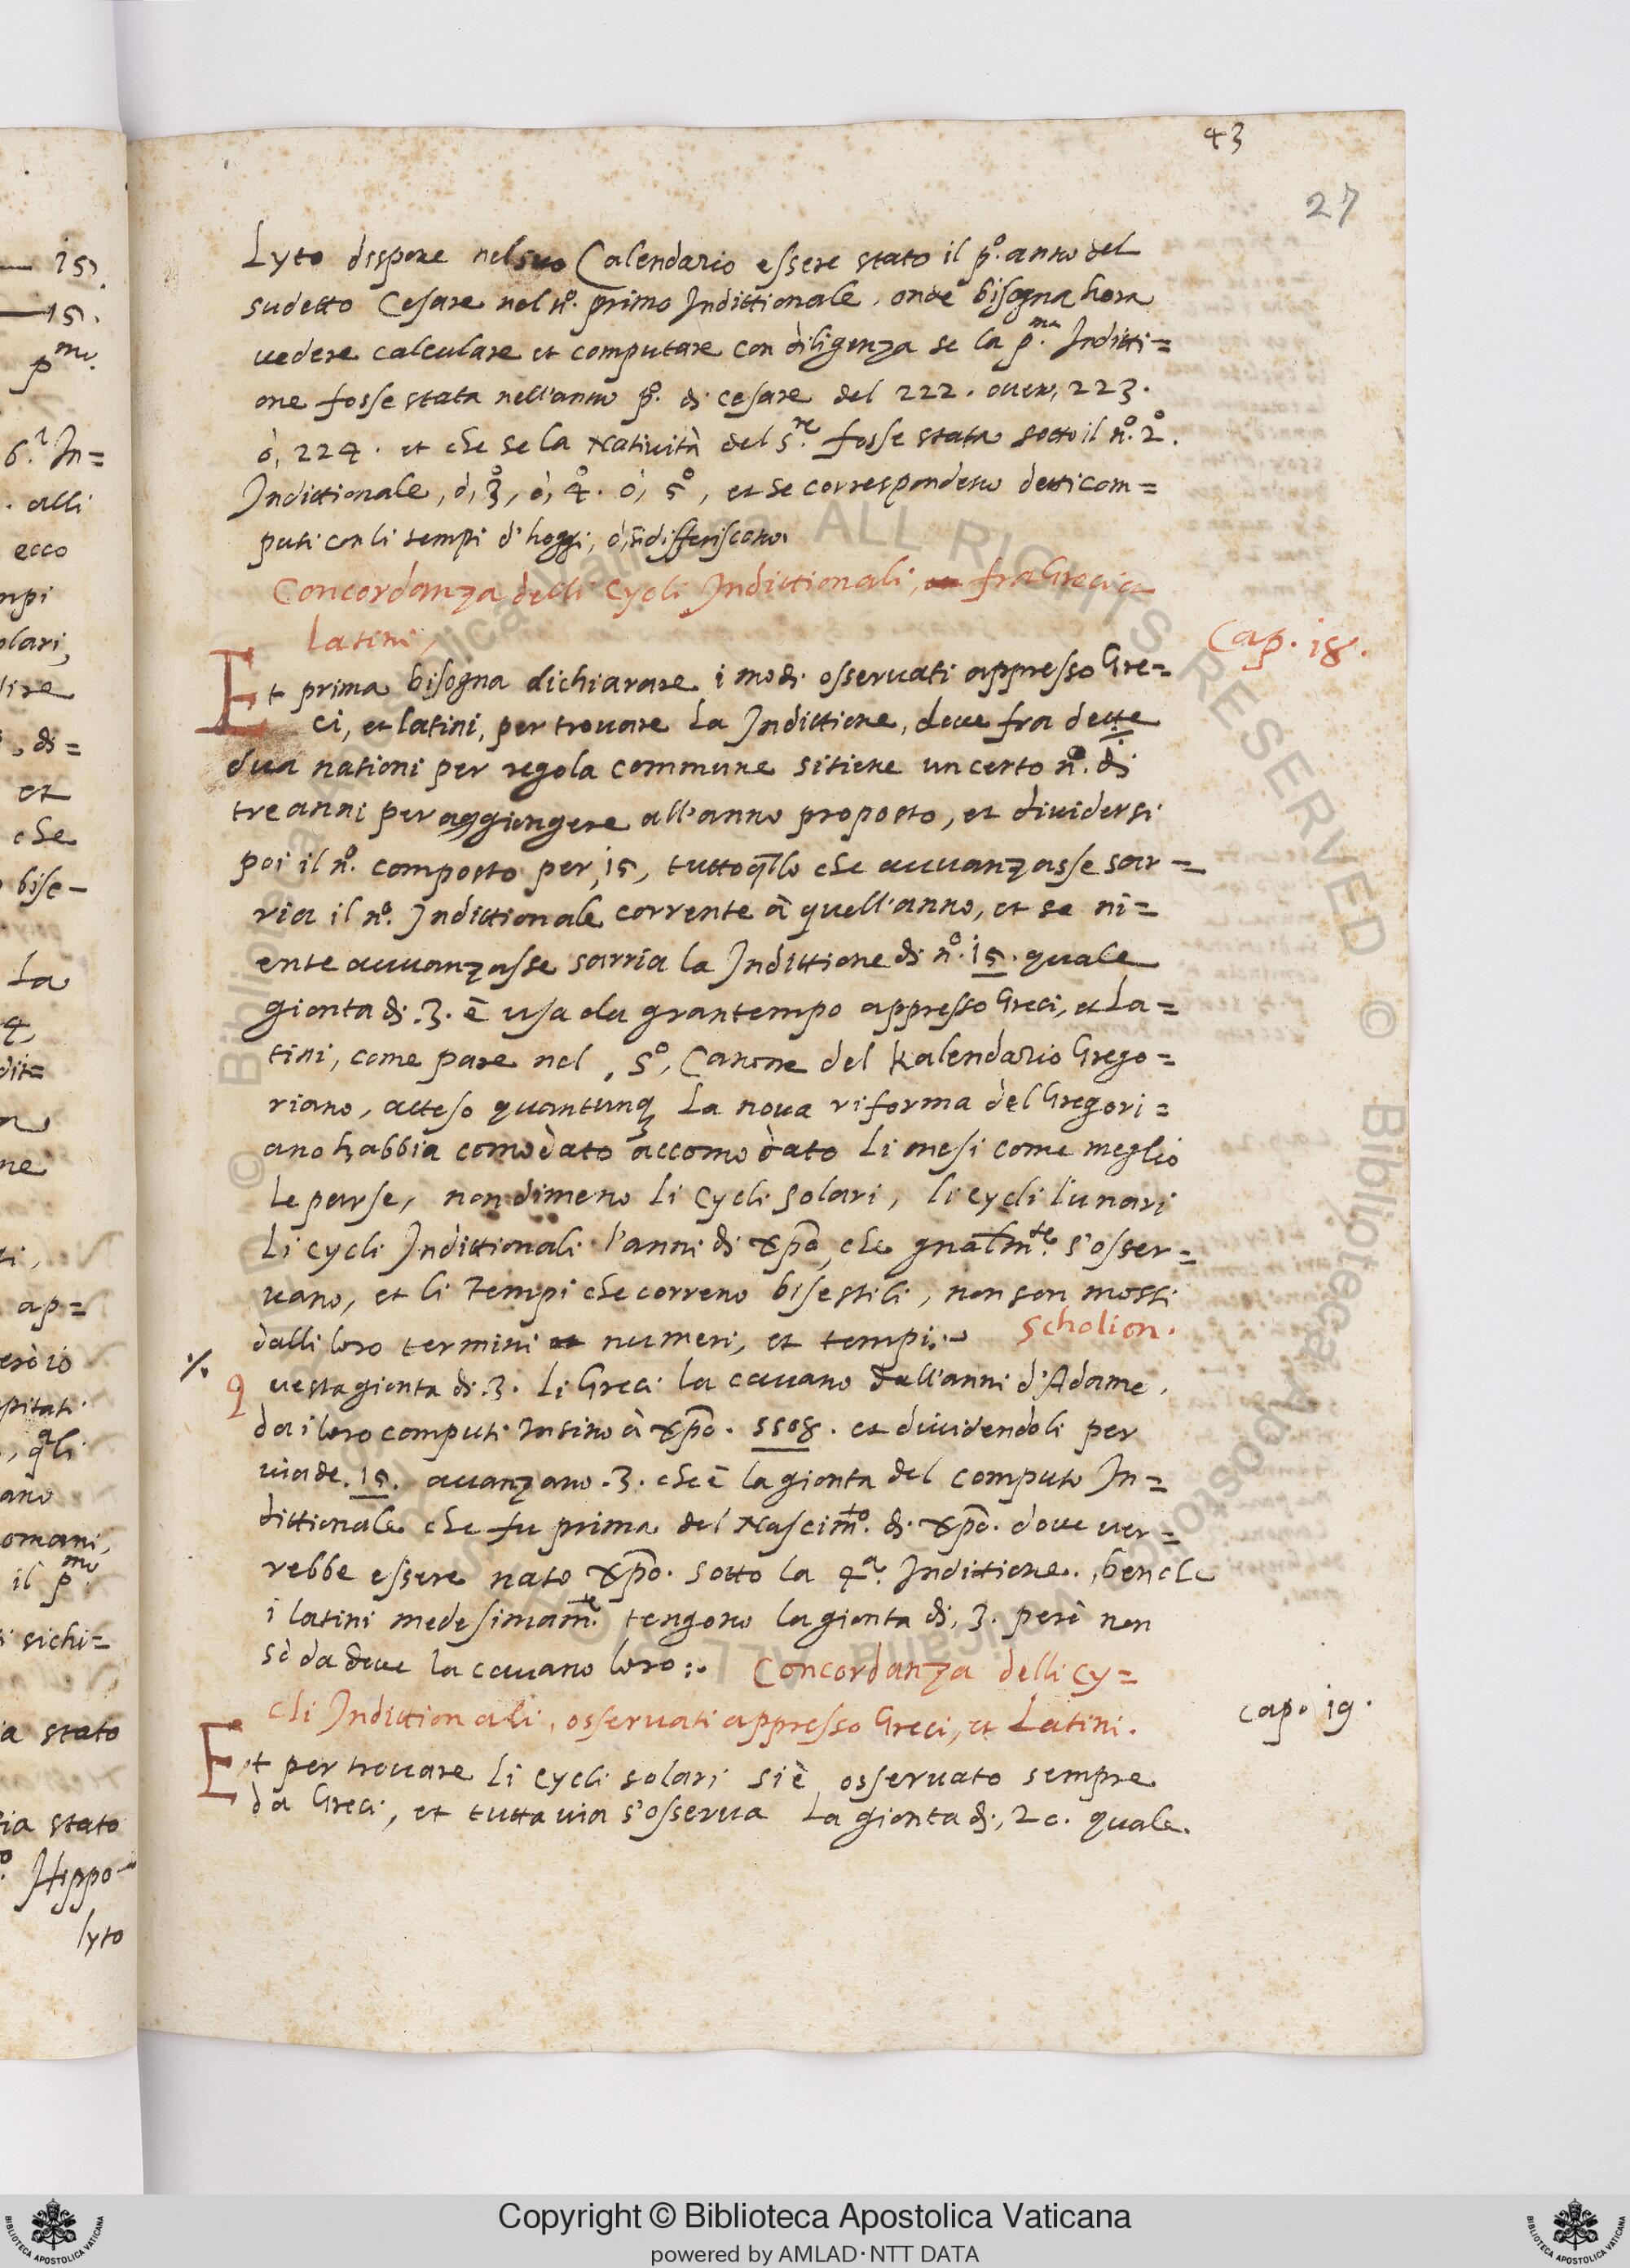 43
27
Lyto dispone nel suo Calendario essere stato il pº. anno del
sudetto Cesare nel nº. primo Indittionale, onde bisogna hora
uedere calculare et computare con diligenza se la pma. Inditti=
one fosse stata nell'anno pº. di cesare del 222. ouero, 223.
ò, 224. et che se la Natiuità del Sre. fosse stata sotto il nº. 2º.
Indittionale, ò, 3º, ò, 4º. ò, 5º, et se correspondeno detti com=
puti con li tempi d'hoggi, ò, differiscono.
Concordanza delli Cycli Indittionali, fra Greci et
Latini,
Cap. 18.
Et prima bisogna dichiarare i modi osseruati appresso Gre=
ci, et latini, per trouare la Indittione, doue fra dette
dua nationi per regola commune si tiene un certo nº. di
tre anni per aggiongere all'anno proposto, et diuidersi
poi il nº. composto per, 15, tutto qllo che auuanzasse sar=
ria il nº. Indittionale corrente à quell'anno, et se ni=
ente auuanzasse sarria la Indittione di nº. 15. quale
gionta di .3. è usa da gran tempo appresso Greci, et La=
tini, come pare nel, 5º, Canone del Kalendario Grego=
riano, atteso quantunq la noua riforma del Gregori=
ano habbia comodato accomodato li mesi come meglio
le parse, non dimeno li cycli solari, li cycli lunari
li cycli Indittionali l'anni di xpo, che gnalmte. s'osser=
uano, et li tempi che correno bisestili, non son mossi
dalli loro termini numeri, et tempi.
Scholion.
Questa gionta di .3. li Greci la cauano dall'anni d'Adamo,
da i loro computi insino à xpo. 5508. et diuidendoli per
uia de .15. auanzano .3. che è la gionta del computo In=
dittionale che fu prima del Nascimto. di xpo. doue uer=
rebbe essere nato xpo. sotto la 4a. Indittione, benche
i latini medesimamte. tengono la gionta di, 3. però non
sò da doue la cauano loro:.
Concordanza delli Cy=
cli Indittionali, osseruati appresso Greci, et Latini.
capo 19.
Et per trouare li cycli solari si è osseruato sempre
da Greci, et tutta uia s'osserua la gionta di, 20. quale
15.
15.
pmo.
6.a In=
. alli
ecco
mpi
olari,
dire
, di=
et
che
bise-
La
4,
dit=
ne
ap=
erò io
pitati
, qali
ano
omani,
il pmo.
si sichi=
ia stato
sia stato
Hippo-
lyto
© Biblioteca Apostolica Vaticana ALL RIGHTS RESERVED
Copyright © Biblioteca Apostolica Vaticana
powered by AMLAD·NTT DATA
BIBLIOTECA APOSTOLICA VATICANA
BIBLIOTECA APOSTOLICA VATICANA